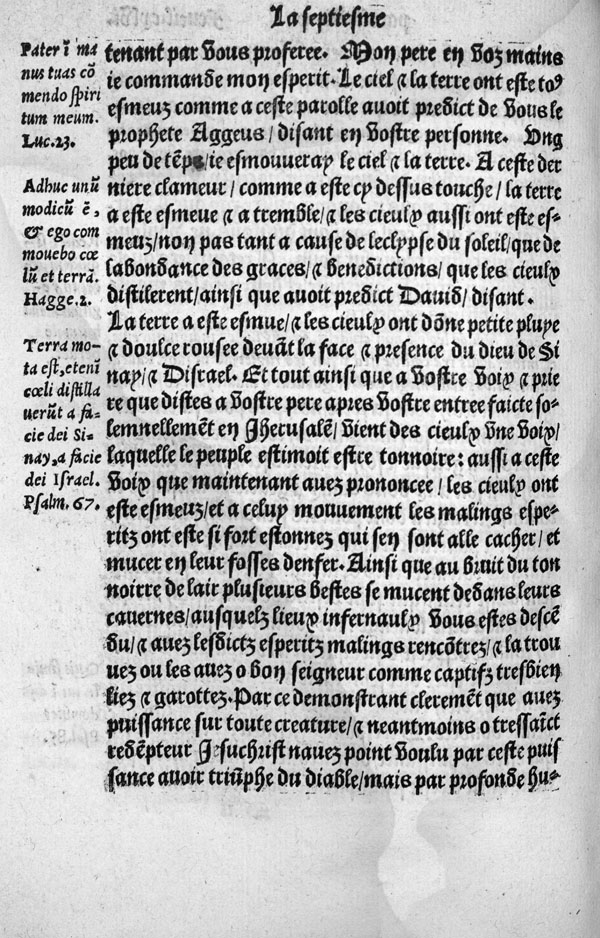 La septiesme
Pater ī ma
nus tuas cō
mendo spiri
tum meum.
Luc.23.
Adhuc unū
modicū ē,
& ego com
mouebo cœ
lū et terrā.
Hagge.2.
Terra mo-
ta est, etenī
cœli distilla
uerūt a fa-
cie dei Si-
nay, a facie
dei Israel.
Psalm. 67.
tenant par vous proferee. Mon pere en voz mains
ie commande mon esperit. Le ciel ⁊ la terre ont este toꝰ
esmeuz comme a ceste parolle auoit predict de vous le
prophete Aggeus / disant en vostre personne. Ung
peu de tēps / ie esmouueray le ciel ⁊ la terre. A ceste der
niere clameur / comme a este cy dessus touche / la terre
a este esmeue ⁊ a tremble / ⁊ les cieulx aussi ont este es-
meuz / non pas tant a cause de leclypse du soleil / que de
labondance des graces / ⁊ benedictions / que les cieulx
distilerent / ainsi que auoit predict Dauid / disant.
La terre a este esmue / ⁊ les cieulx ont dōne petite pluye
⁊ doulce rousee deuāt la face ⁊ presence du dieu de Si
nay / ⁊ Disrael. Et tout ainsi que a vostre voix ⁊ prie
re que distes a vostre pere apres vostre entree faicte so-
lemnellemēt en Jherusalē / vient des cieulx vne voix /
laquelle le peuple estimoit estre tonnoire: aussi a ceste
voix que maintenant auez prononcee / les cieulx ont
este esmeuz / et a celuy mouuement les malings espe-
ritz ont este si fort estonnez qui sen sont alle cacher / et
mucer en leur fosses denfer. Ainsi que au bruit du ton
noirre de lair plusieurs bestes se mucent dedans leurs
cauernes / ausquelz lieux infernaulx vous estes descē
du / ⁊ auez lesdictz esperitz malings rencōtrez / ⁊ la trou
uez ou les auez o bon seigneur comme captifz tresbien
liez ⁊ garottez. Par ce demonstrant cleremēt que auez
puissance sur toute creature / ⁊ neantmoins o tressaīct
redēpteur Jesuchrist nauez point voulu par ceste puis
sance auoir triūphe du diable / mais par profonde hu-